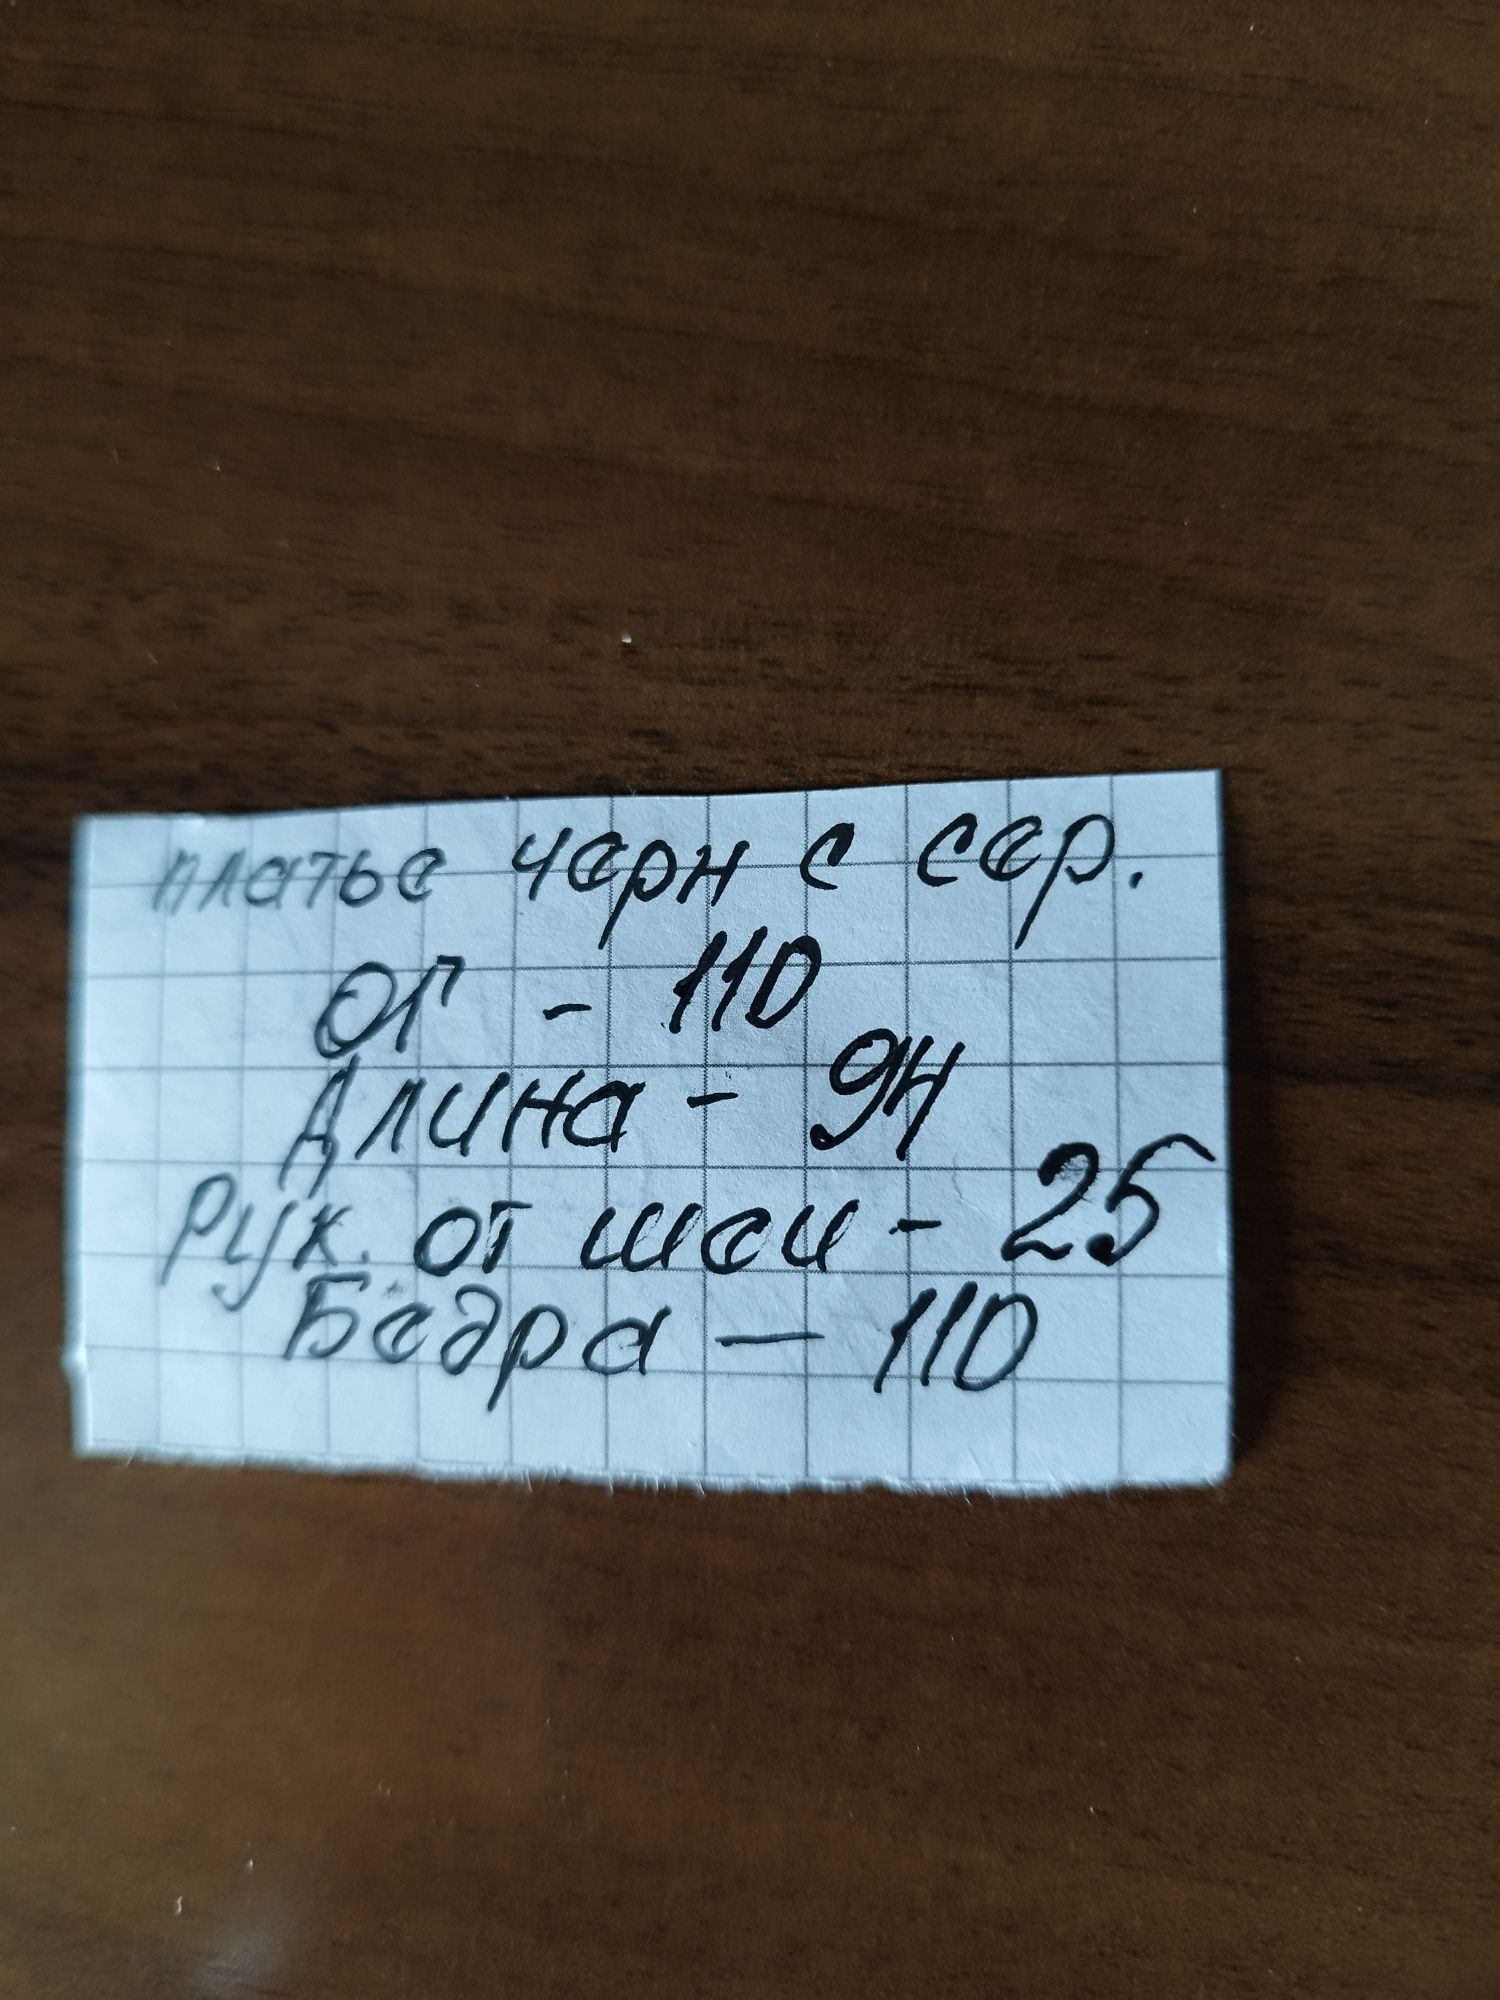 платье черн с сер.
ОГ - 110
Длина - 94
Рук. от шеи - 25
Бедра — 110